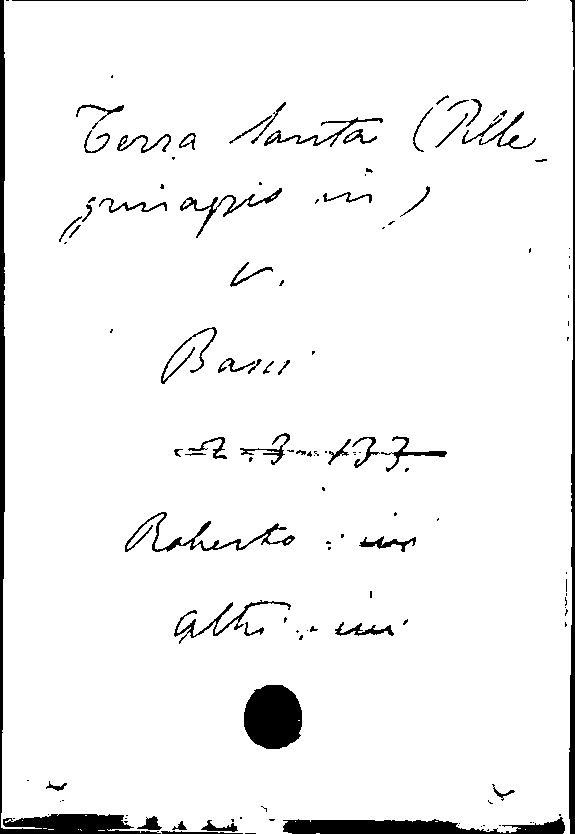 Terra Santa (Pelle-
grinaggio in)
v.
Bassi
Z. 3. 133.
Roberto : ivi
Altri : ivi